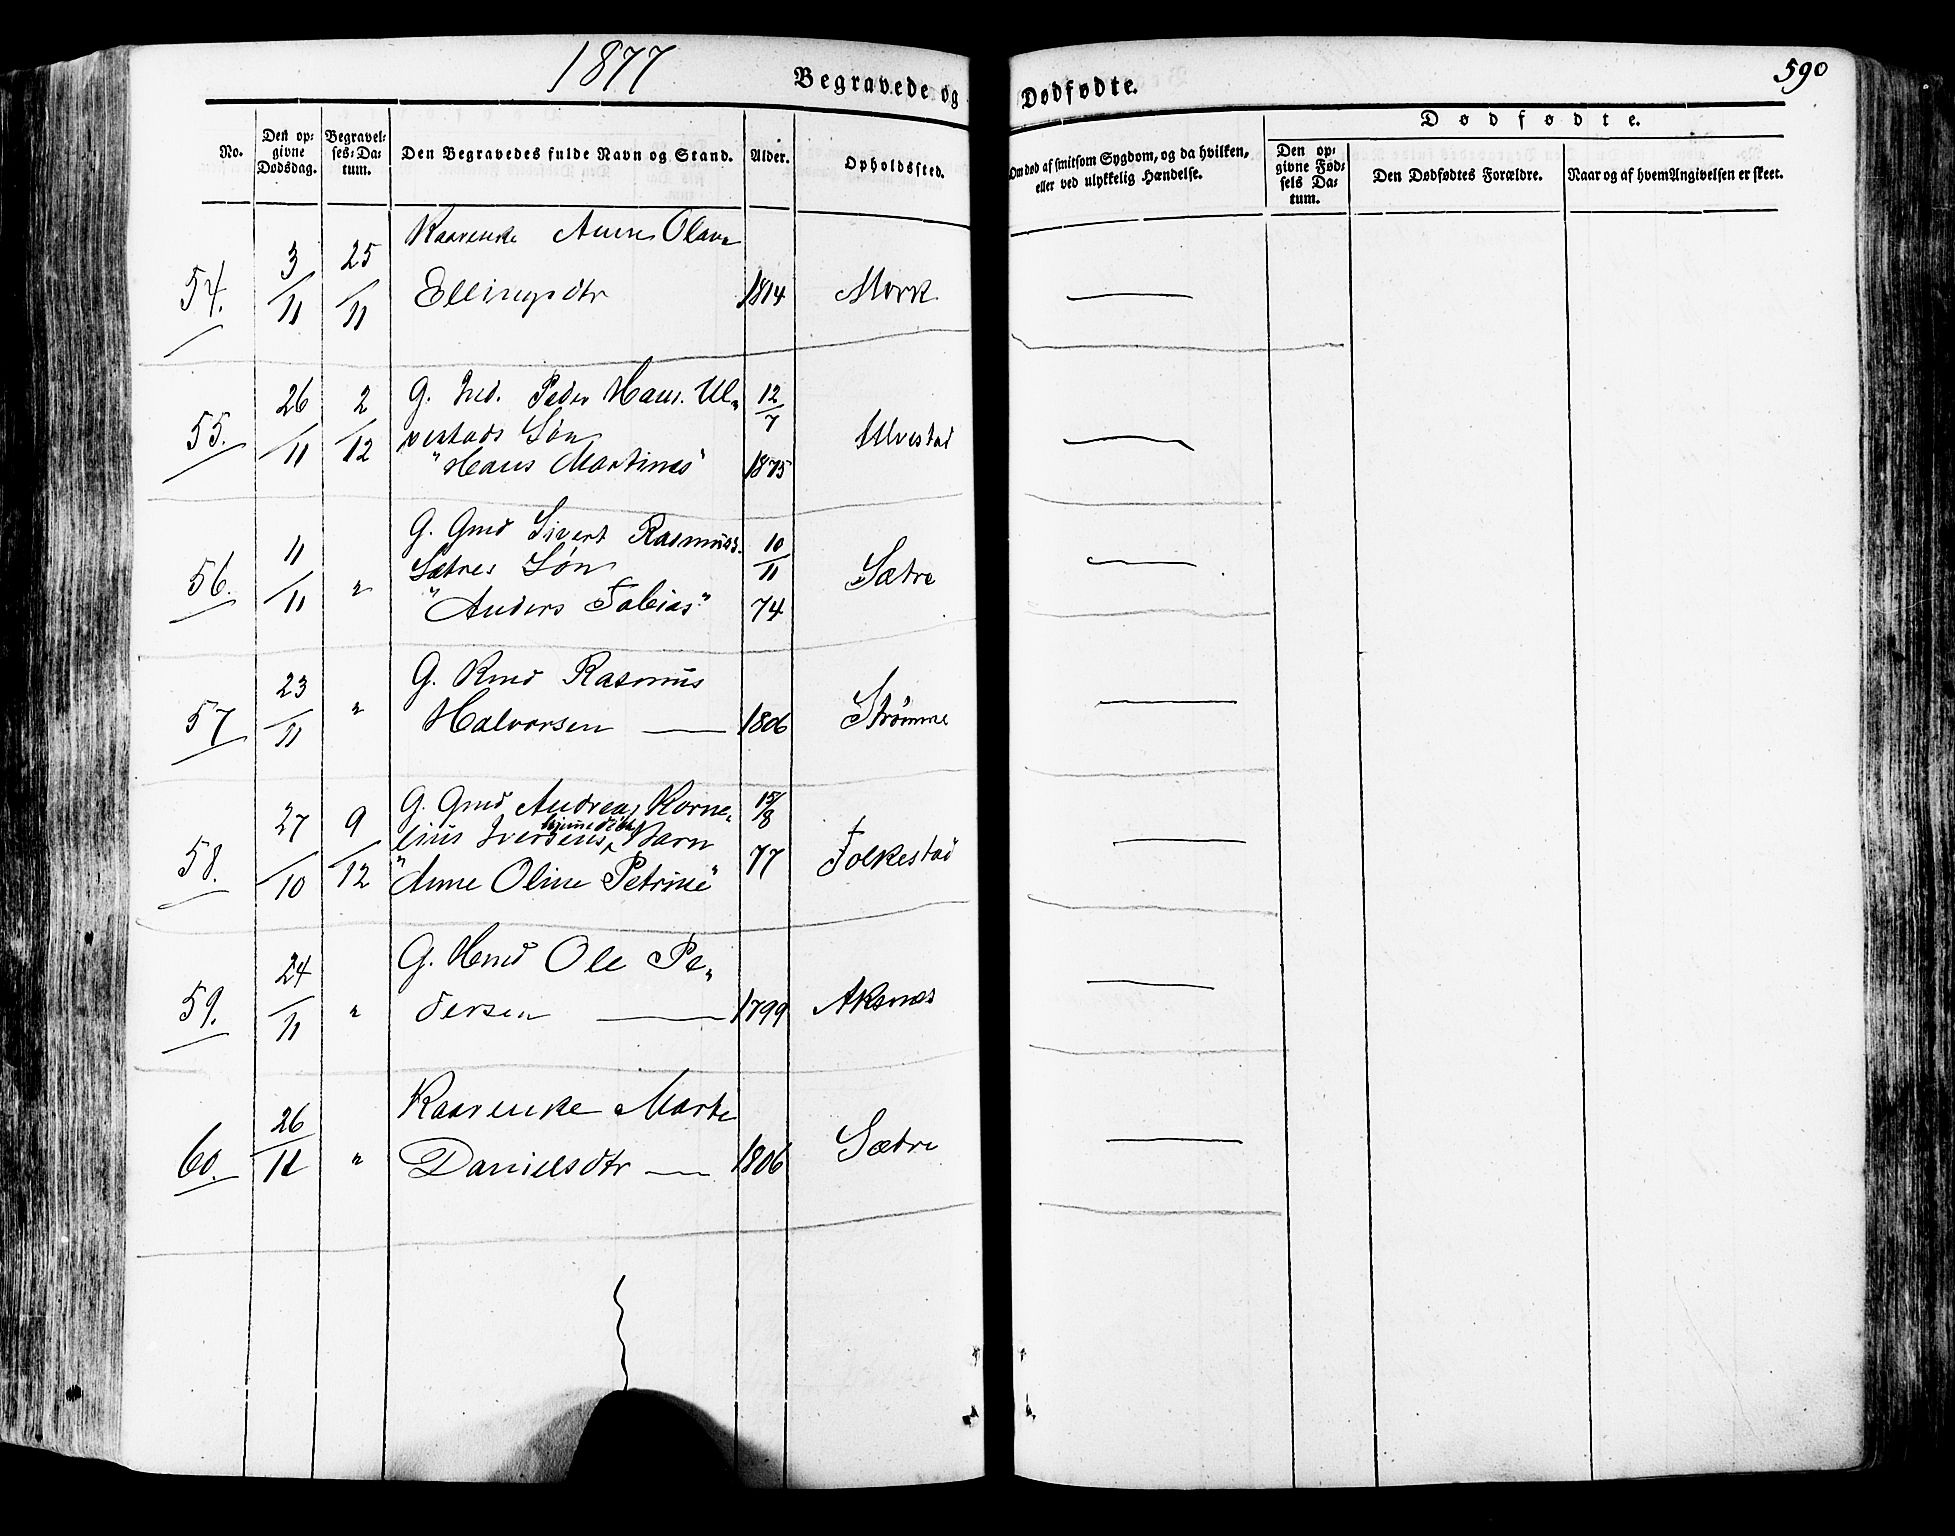 1877
590
Begravede og Dødfødte.
No.
Den op-
givne
Dødsdag.
Begravel-
ses-Da-
tum.
Den Begravedes fulde Navn og Stand.
Alder.
Opholdssted.
Om død af smitsom Sygdom, og da hvilken,
eller ved ulykkelig Hændelse.
Dødfødte.
Den op-
givne Fød-
sels Da-
tum.
Den Dødfødtes Forældre.
Naar og af hvem Angivelsen er skeet.
54. 3/11 25/11 Kaarenke Anne Olava
Ellingsdtr 1814 Mork
55. 26/11 2/12 G. Ind. Peder Hans. Ul„
vestads Søn
"Hans Martinus" 12/7 1875 Ulvestad
56. 11/11 „ G. Gmd Sivert Rasmuss.
Sætres Søn
"Anders Tobias" 10/11 74 Sætre
57 23/11 „ G. Kmd Rasmus
Halvorsen 1806 Strømme
58. 27/10 9/12 G. Gmd Andreas Korne„
lius Iversens hjemmedøbte Barn
"Anne Oline Petrine" 15/8 77 Folkestad
59. 24/11 „ G. Kmd Ole Pe„
dersen 1799 Aksnes
60. 26/11 „ Kaarenke Marte
Danielsdtr 1806 Sætre